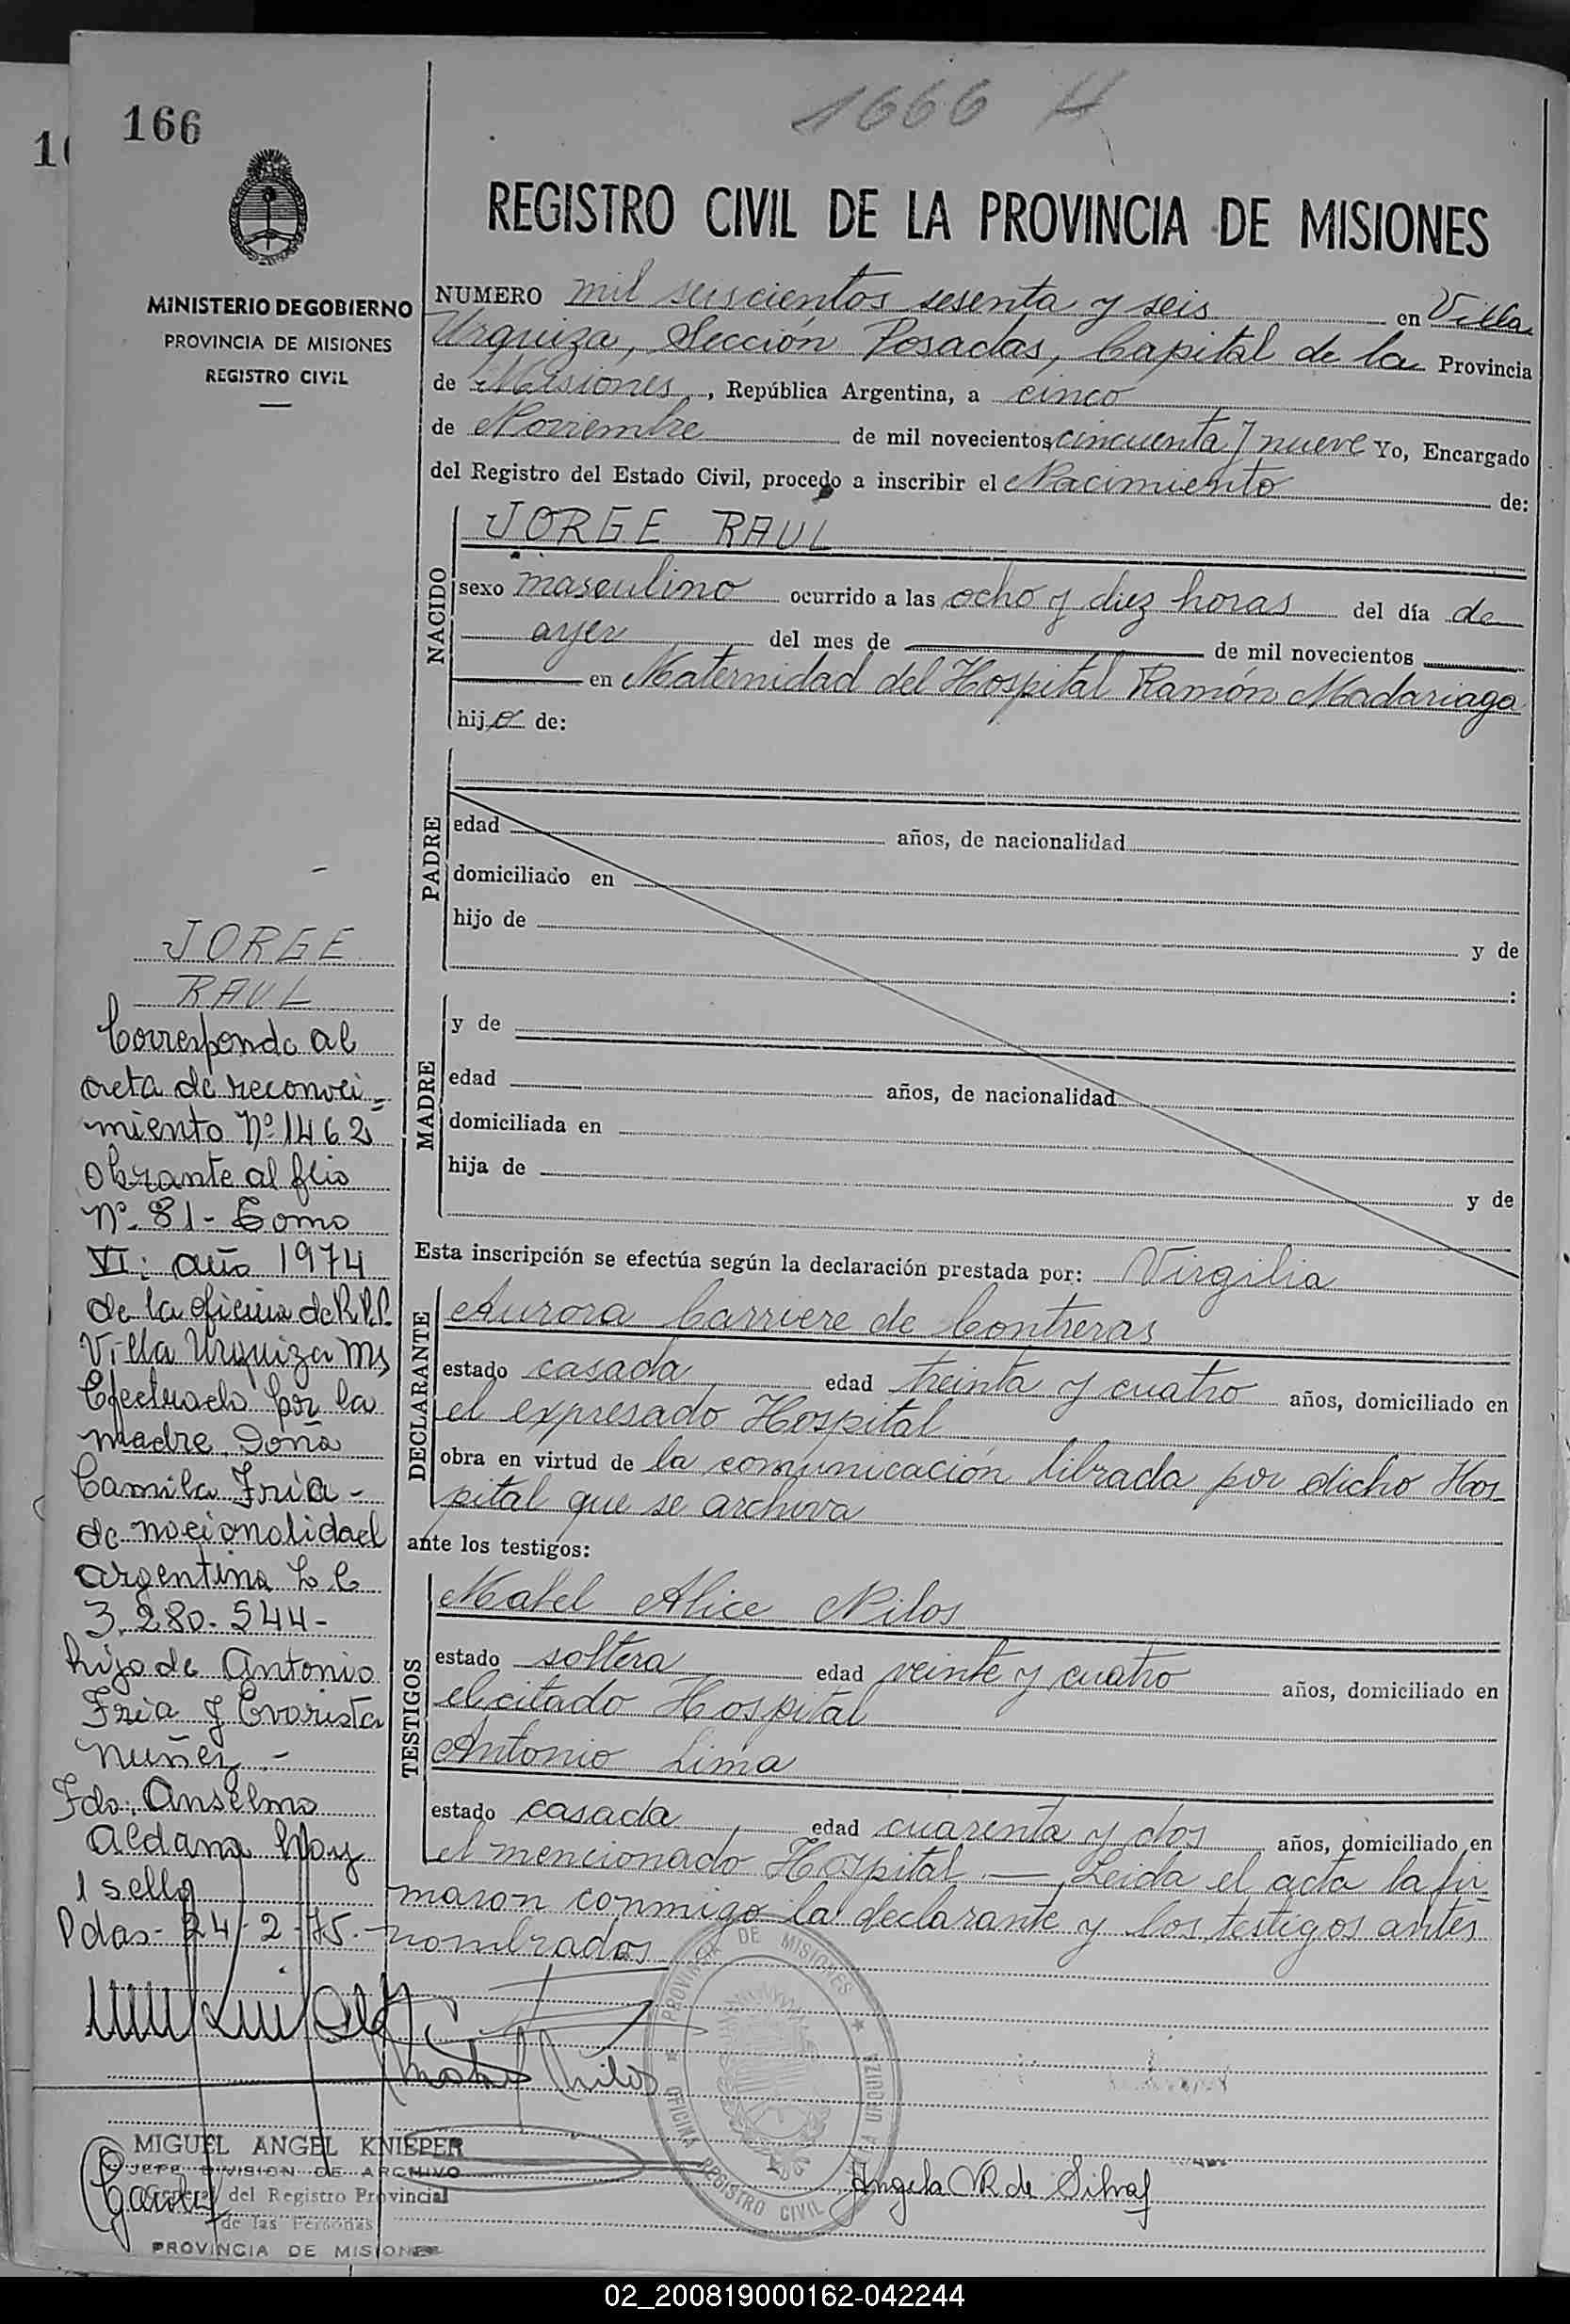 1666 H
166
REGISTRO CIVIL DE LA PROVINCIA DE MISIONES
MINISTERIO DE GOBIERNO
PROVINCIA DE MISIONES
REGISTRO CIVIL
NUMERO mil seiscientos sesenta y seis en Villa
Urquiza, Sección Posadas, Capital de la Provincia
de Misiones, República Argentina, a cinco
de Noviembre de mil novecientos cincuenta y nueve Yo, Encargado
del Registro del Estado Civil, procedo a inscribir el Nacimiento de:
NACIDO
JORGE RAUL
sexo masculino ocurrido a las ocho y diez horas del día de
ayer del mes de de mil novecientos
en Maternidad del Hospital Ramón Madariaga
hijo de:
PADRE
edad años, de nacionalidad
domiciliado en
hijo de y de
:
MADRE
y de
edad años, de nacionalidad
domiciliada en
hija de y de
Esta inscripción se efectúa según la declaración prestada por: Virgilia
DECLARANTE
Aurora Carriere de Contreras
estado casada edad treinta y cuatro años, domiciliado en
el expresado Hospital
obra en virtud de la comunicación librada por dicho Hos
pital que se archiva
ante los testigos:
TESTIGOS
Mabel Alice Nilos
estado soltera edad veinte y cuatro años, domiciliado en
el citado Hospital
Antonio Lima
estado casada edad cuarenta y dos años, domiciliado en
el mencionado Hospital — Leida el acta la fir
maron conmigo la declarante y los testigos antes
nombrados
JORGE
RAUL
Corresponde al
acta de reconoci=
miento Nº 1462
Obrante al flio
Nº 81- Tomo
VI: año 1974
de la oficina de R.P.P.
Villa Urquiza Ms
Efectuado por la
madre Doña
Camila Fria -
de nacionalidad
argentina L C
3.280.544-
hija de Antonio
Fria y Evarista
Nuñez.-
Fdo: Anselmo
Aldana Hay
1 sello
Pdas- 24-2-75.-
Mabel Nilos
PROVINCIA DE MISIONES
OFICINA REGISTRO CIVIL
URQUIZA
Angela R de Silva
MIGUEL ANGEL KNIEPER
JEFE DIVISION DE ARCHIVO
General del Registro Provincial
de las Personas
PROVINCIA DE MISIONES
02_200819000162-042244